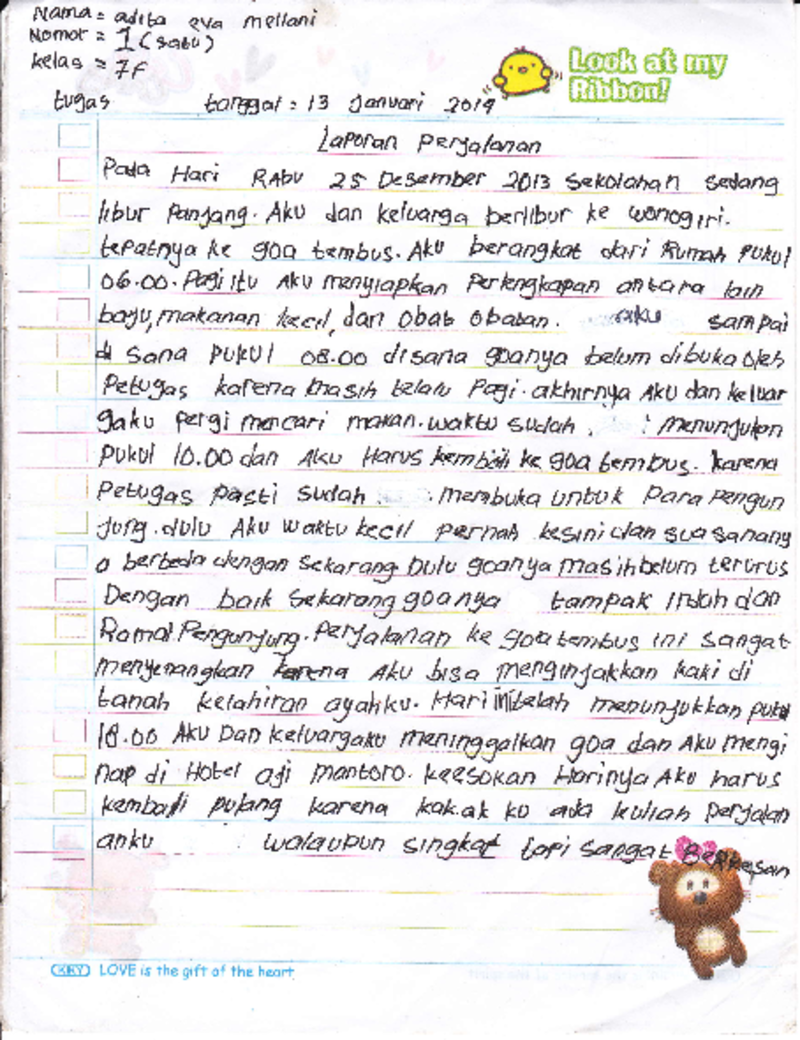 Nama = adita eva mellani
Nomor = 1 (satu)
kelas = 7F
Look at my
Ribbon!
tugas tanggal = 13 Januari 2014
Laporan Perjalanan
Pada Hari RAbu 25 Desember 2013 sekolahan sedang
libur Panjang. Aku dan keluarga berlibur ke wonogiri.
tepatnya ke goa tembus. Aku berangkat dari Rumah pukul
06.00. Pagi itu Aku menyiapkan Perlengkapan antara lain
baju, makanan kecil, dan obat obatan. aku sampai
di sana pukul 08.00 disana goanya belum dibuka oleh
Petugas karena masih telalu Pagi. akhirnya Aku dan keluar
gaku pergi mencari makan. waktu sudah menunjukan
pukul 10.00 dan Aku Harus kembali ke goa tembus. karena
Petugas pasti sudah membuka untuk Para Pengun
jung. dulu Aku waktu kecil pernah kesini dan suasanany
a berbeda dengan sekarang Dulu goanya masih belum terurus
Dengan baik sekarang goanya tampak Indah dan
Ramai Pengunjung. Perjalanan ke goa tembus ini sangat
menyenangkan karena Aku bisa menginjakkan kaki di
tanah kelahiran ayahku. Hari telah menunjukkan pukul
18.00 Aku Dan keluargaku meninggalkan goa dan Aku mengi
nap di Hotel aji mantoro. keesokan Harinya Aku harus
kembali pulang karena kakak ku ada kuliah perjalan
anku walaupun singkat tapi sangat Berkesan
KIKY LOVE is the gift of the heart